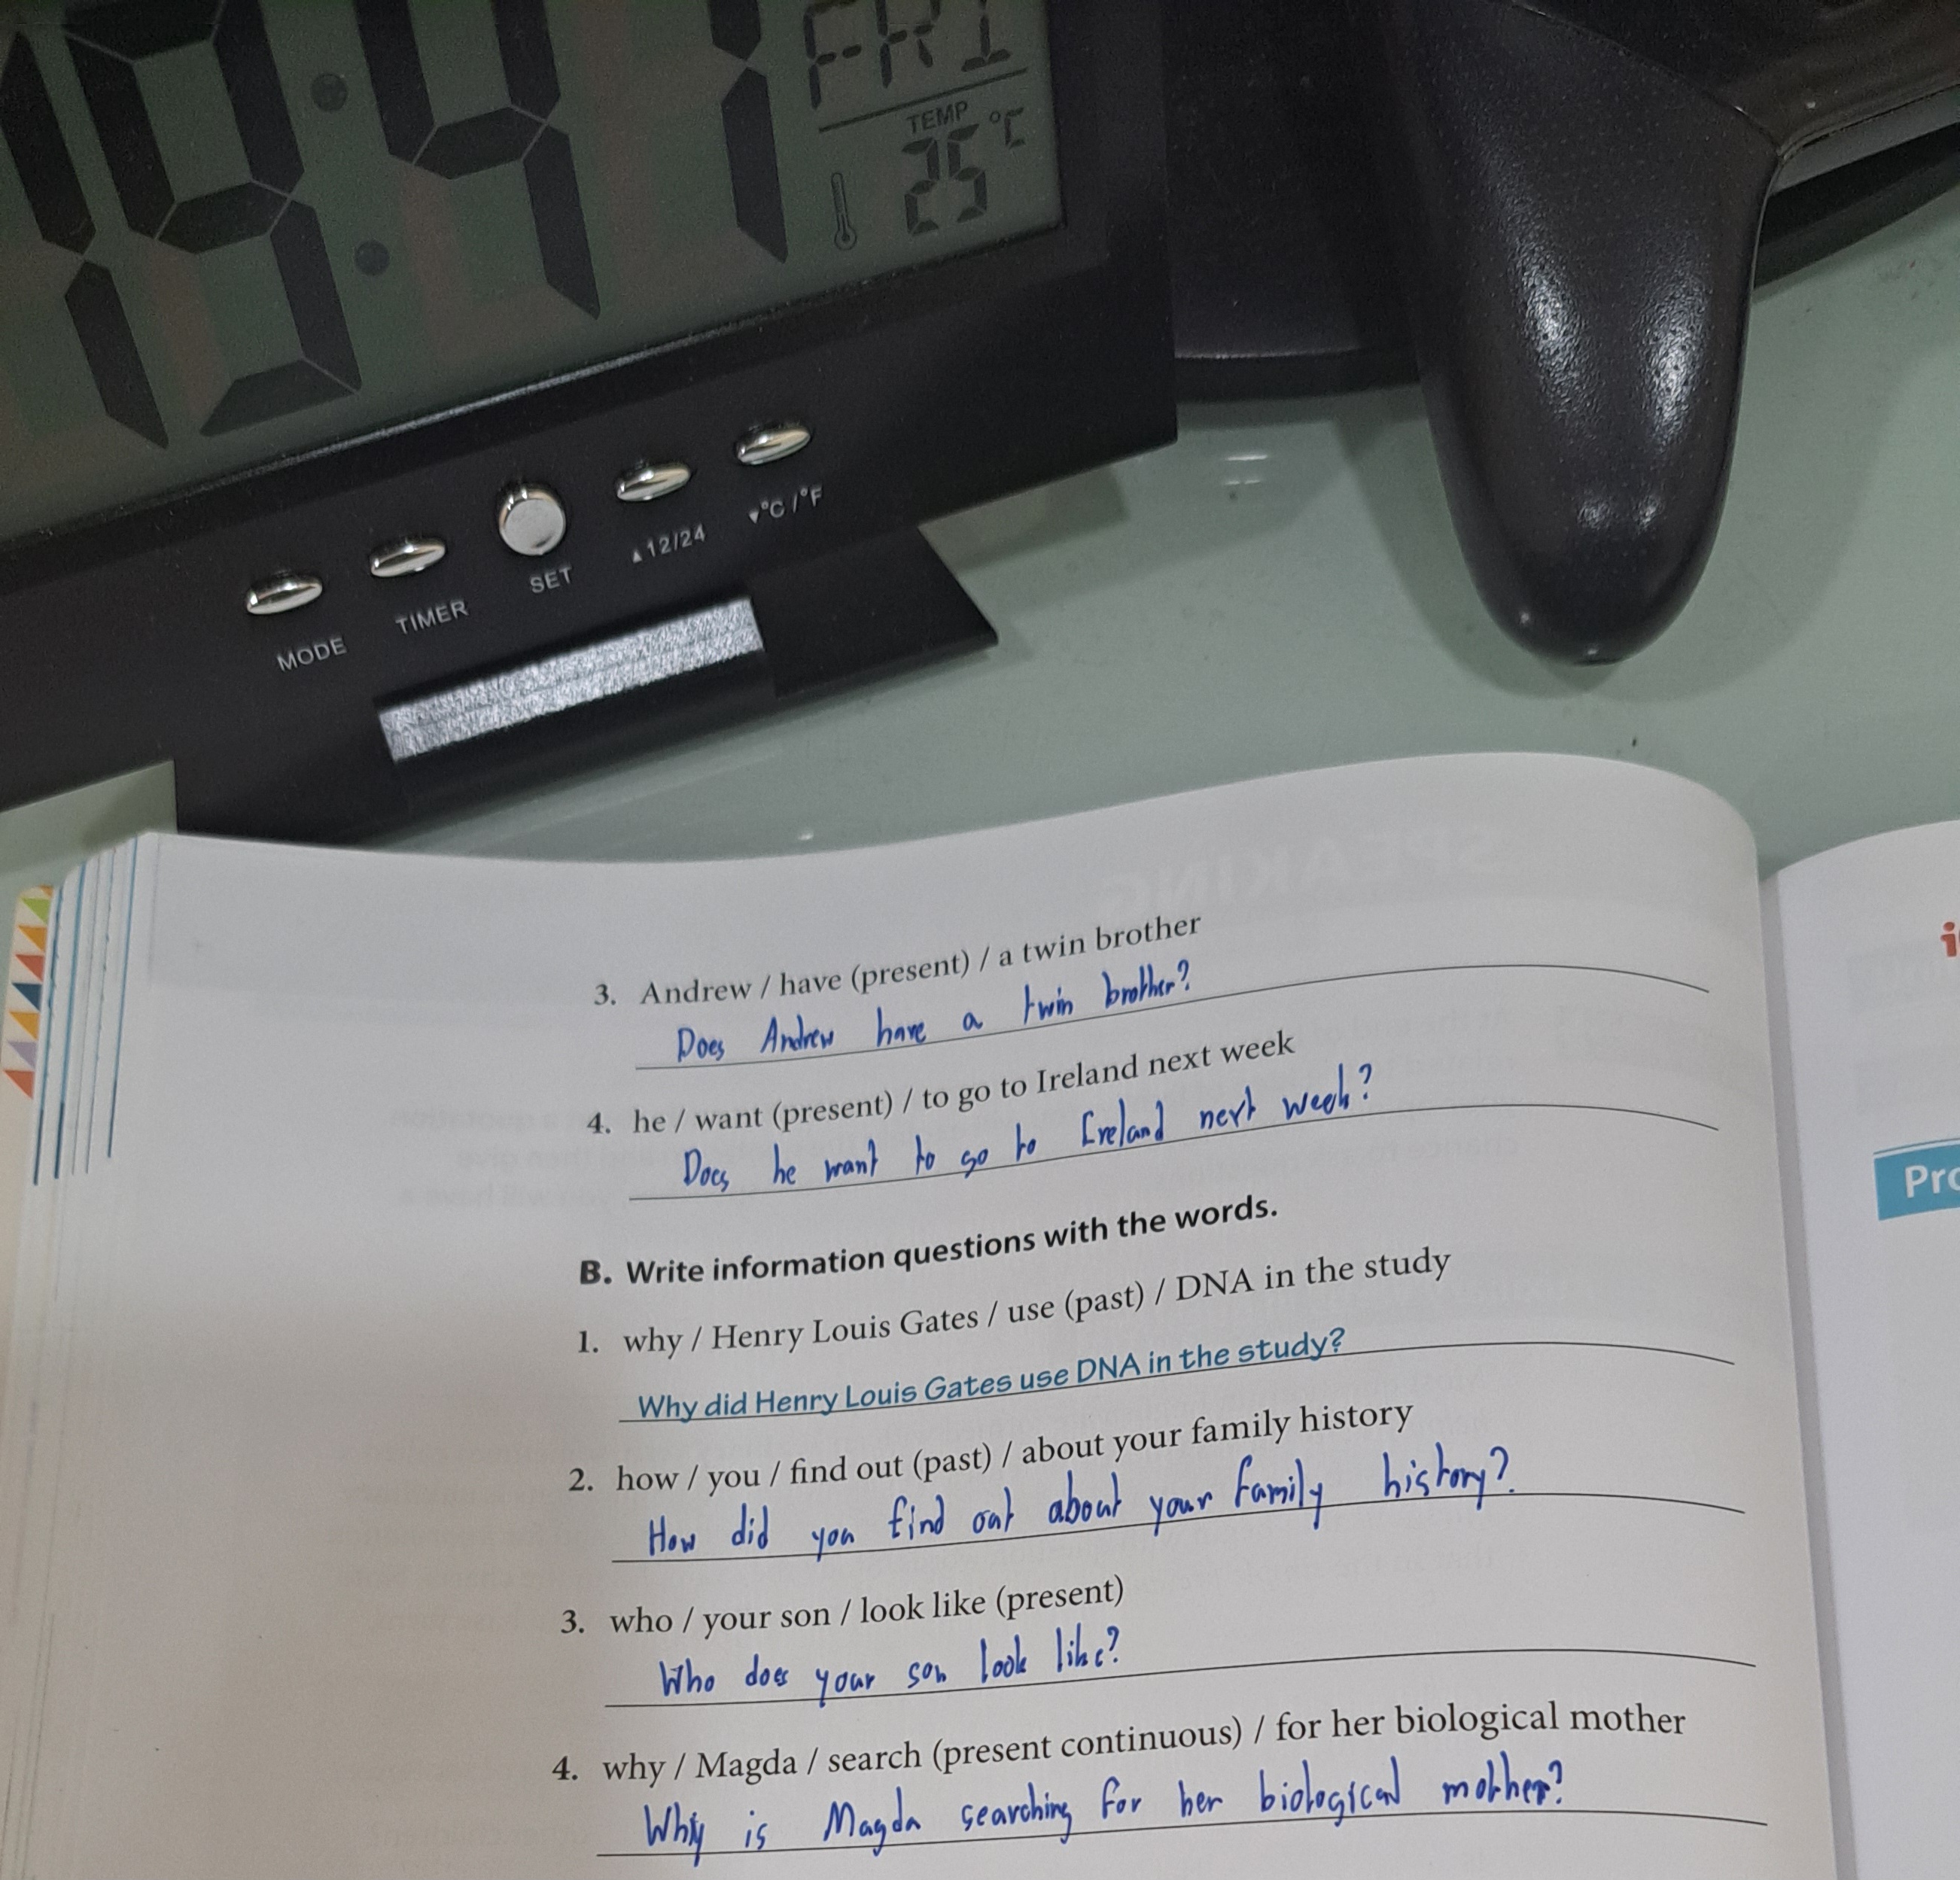 19:41
FRI
TEMP
25 °C
MODE
TIMER
SET
▲12/24
▼°C/°F
3. Andrew / have (present) / a twin brother
Does Andrew have a twin brother?
4. he / want (present) / to go to Ireland next week
Does he want to go to Ireland next week?
B. Write information questions with the words.
1. why / Henry Louis Gates / use (past) / DNA in the study
Why did Henry Louis Gates use DNA in the study?
2. how / you / find out (past) / about your family history
How did you find out about your family history?
3. who / your son / look like (present)
Who does your son look like?
4. why / Magda / search (present continuous) / for her biological mother
Why is Magda searching for her biological mother?
i
Pro